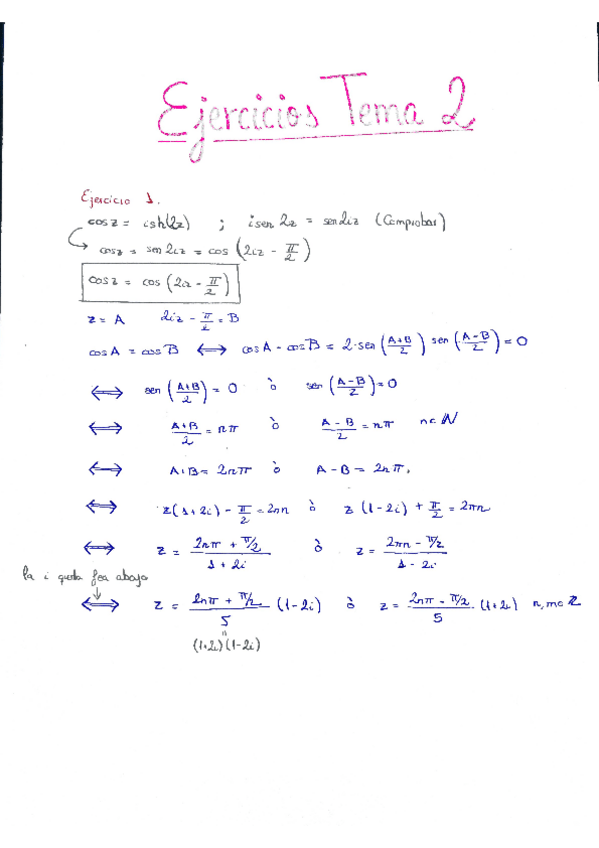 Ejercicios Tema 2
Ejercicio 1.
cos z = i sh(2z) ; i sen 2z = sen 2iz (Comprobar)
cos z = sen 2iz = cos (2iz - π/2)
cos z = cos (2iz - π/2)
z = A 2iz - π/2 = B
cos A = cos B ⟺ cos A - cos B = 2·sen ((A+B)/2) sen ((A-B)/2) = 0
⟺ sen ((A+B)/2) = 0 ò sen ((A-B)/2) = 0
⟺ (A+B)/2 = nπ ò (A-B)/2 = nπ n∈ℕ
⟺ A+B = 2nπ ò A-B = 2nπ.
⟺ z(1+2i) - π/2 = 2πn ò z(1-2i) + π/2 = 2πn
⟺ z = (2nπ + π/2)/(1+2i) ò z = (2πn - π/2)/(1-2i)
la i queda fea abajo
⟺ z = (2nπ + π/2)/5 (1-2i) ò z = (2nπ - π/2)/5 · (1+2i) n,m∈ℤ
(1+2i)(1-2i)